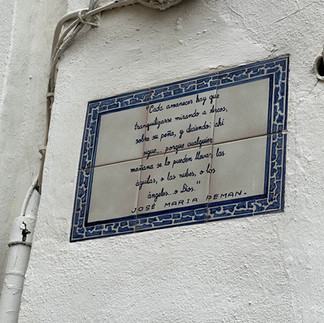 "Cada amanecer hay que
tranquilizarse mirando a Arcos,
sobre su peña, y diciendo: ahí
sigue... porque cualquier
mañana se lo pueden llevar las
águilas, o las nubes, o los
ángeles. o Dios."
JOSÉ MARIA PEMAN.